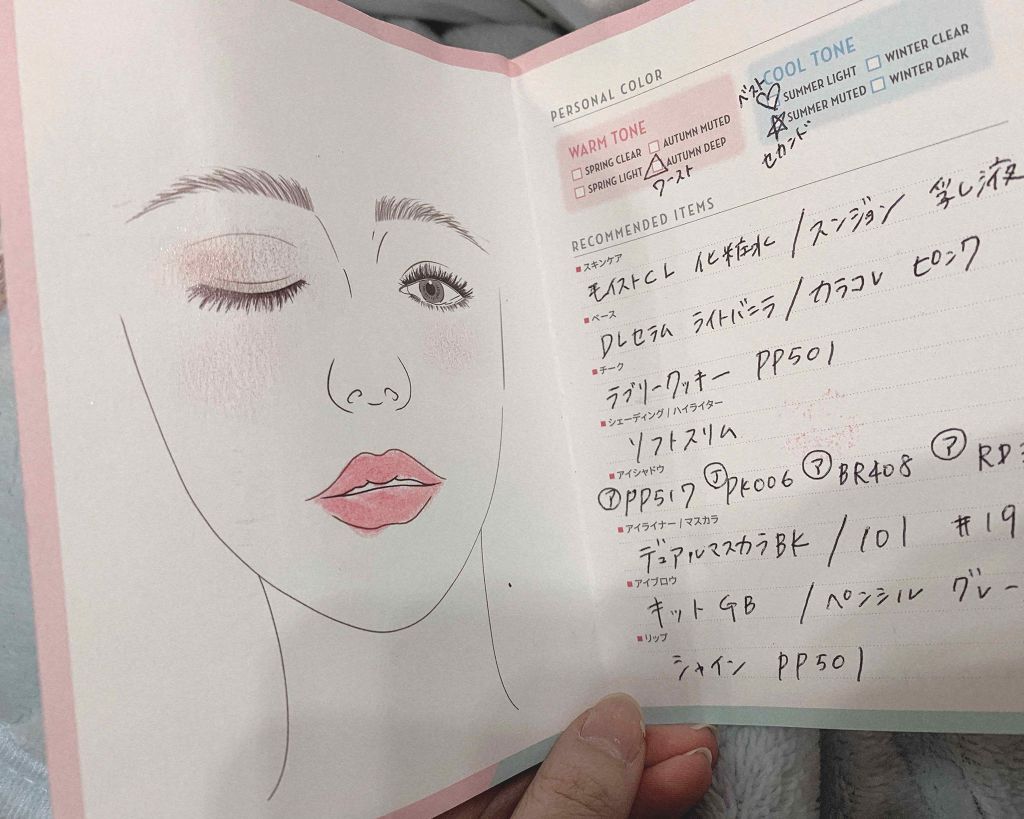 PERSONAL COLOR
WARM TONE
SPRING CLEAR AUTUMN MUTED
SPRING LIGHT AUTUMN DEEP
ワースト
COOL TONE
ベスト
SUMMER LIGHT WINTER CLEAR
SUMMER MUTED WINTER DARK
セカンド
RECOMMENDED ITEMS
スキンケア
モイストCL 化粧水 / スンジョン 乳液
ベース
DLセラム ライトバニラ / カラコレ ピンク
チーク
ラブリークッキー PP501
シェーディング / ハイライター
ソフトスリム
アイシャドウ
㋐PP517 PK006 ㋐BR408 ㋐RD
アイライナー / マスカラ
デュアルマスカラBK / 101 #19
アイブロウ
キット GB / ペンシル グレー
リップ
シャイン PP501